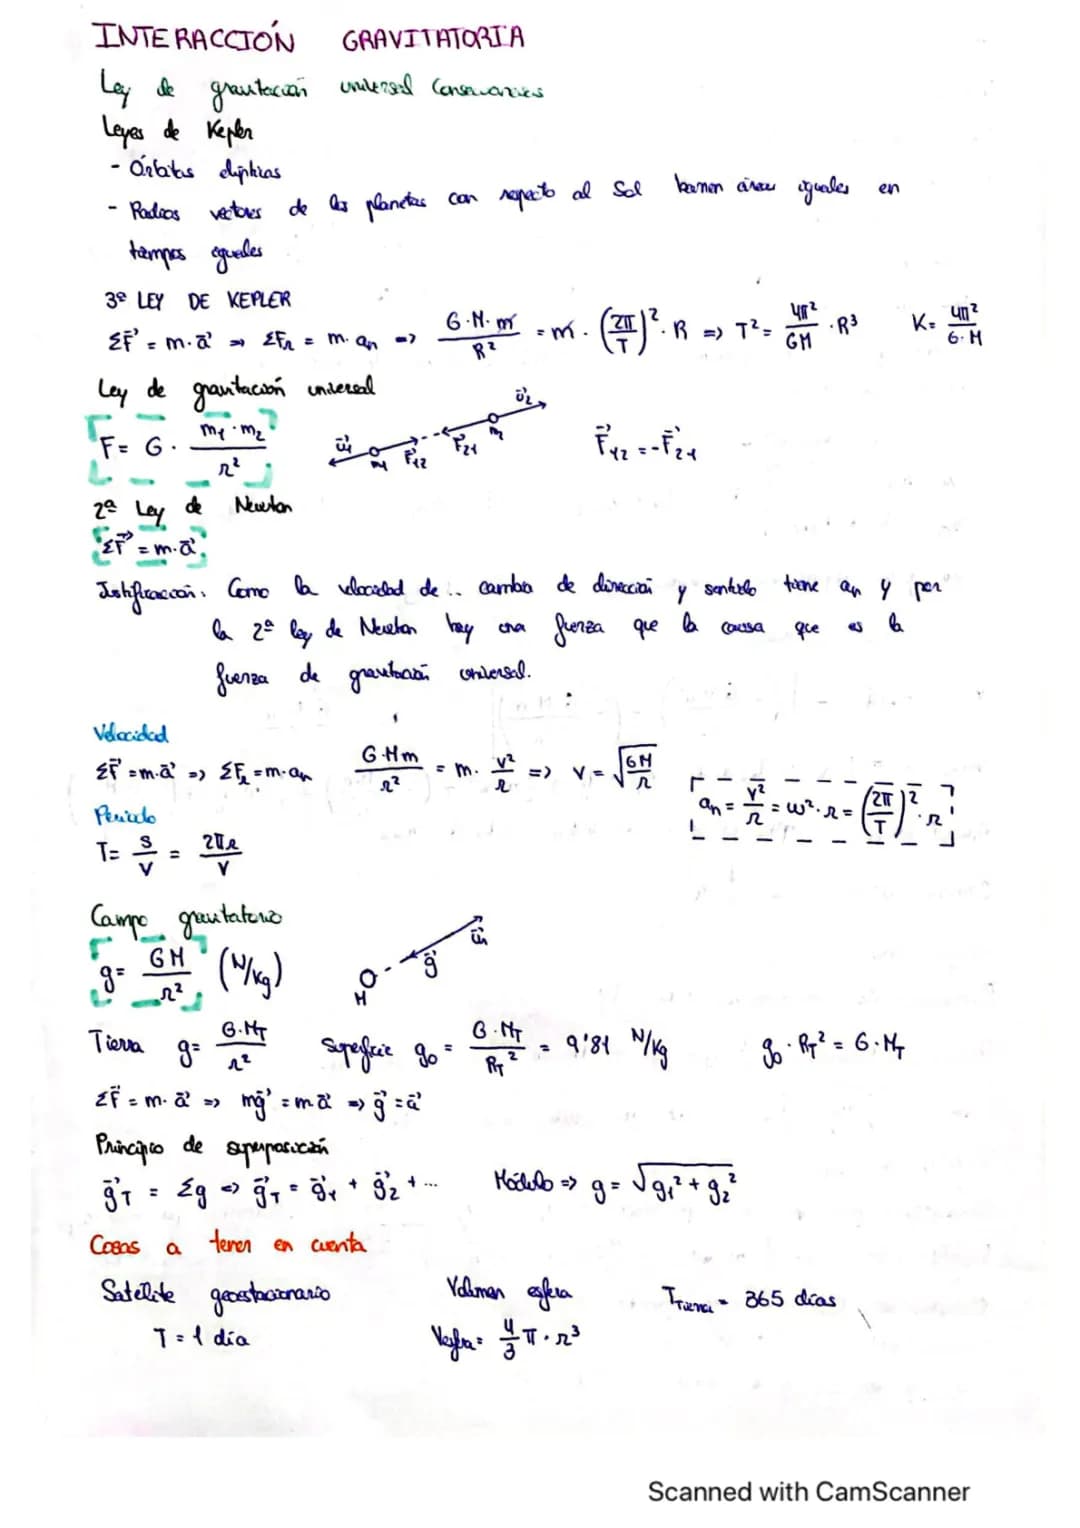 INTERACCIÓN GRAVITATORIA
Ley de gravitación universal
Leyes de Kepler
- Órbitas elípticas
- Radios vectores de los planetas con respecto al Sol barren áreas iguales en
tiempos iguales
3ª LEY DE KEPLER
ΣF⃗ = m·a⃗ => ΣFn = m·an => G·M·m/R² = m·(2π/T)²·R => T² = 4π²/GM ·R³ K = 4π²/G·M
Ley de gravitación universal
F = G· m1·m2/r² u⃗1 m1 F⃗12 F⃗21 m2 u⃗2 F⃗12 = -F⃗21
2ª Ley de Newton
ΣF⃗ = m·a⃗
Justificación: Como la velocidad de .. cambia de dirección y sentido tiene an y por
la 2ª ley de Newton hay una fuerza que la causa que es la
fuerza de gravitación universal.
Velocidad
ΣF⃗ = m·a⃗ => ΣFn = m·an G·Mm/r² = m· v²/r => v = √(GM/r)
an = v²/r = ω²·r = (2π/T)²·r
Periodo
T = s/v = 2πr/v
Campo gravitatorio
g = GM/r² (N/kg) M g⃗ u⃗r
Tierra g = G·MT/r² Superficie g0 = G·MT/RT² = 9'81 N/kg g0·RT² = G·MT
ΣF⃗ = m·a⃗ => mg⃗ = ma⃗ => g⃗ = a⃗
Principio de superposición
g⃗T = Σg => g⃗T = g⃗1 + g⃗2 + ... Módulo => g = √(g1² + g2²)
Cosas a tener en cuenta
Satélite geoestacionario Volumen esfera TTierra = 365 días
T = 1 día Vesfera = 4/3 π·r³
Scanned with CamScanner